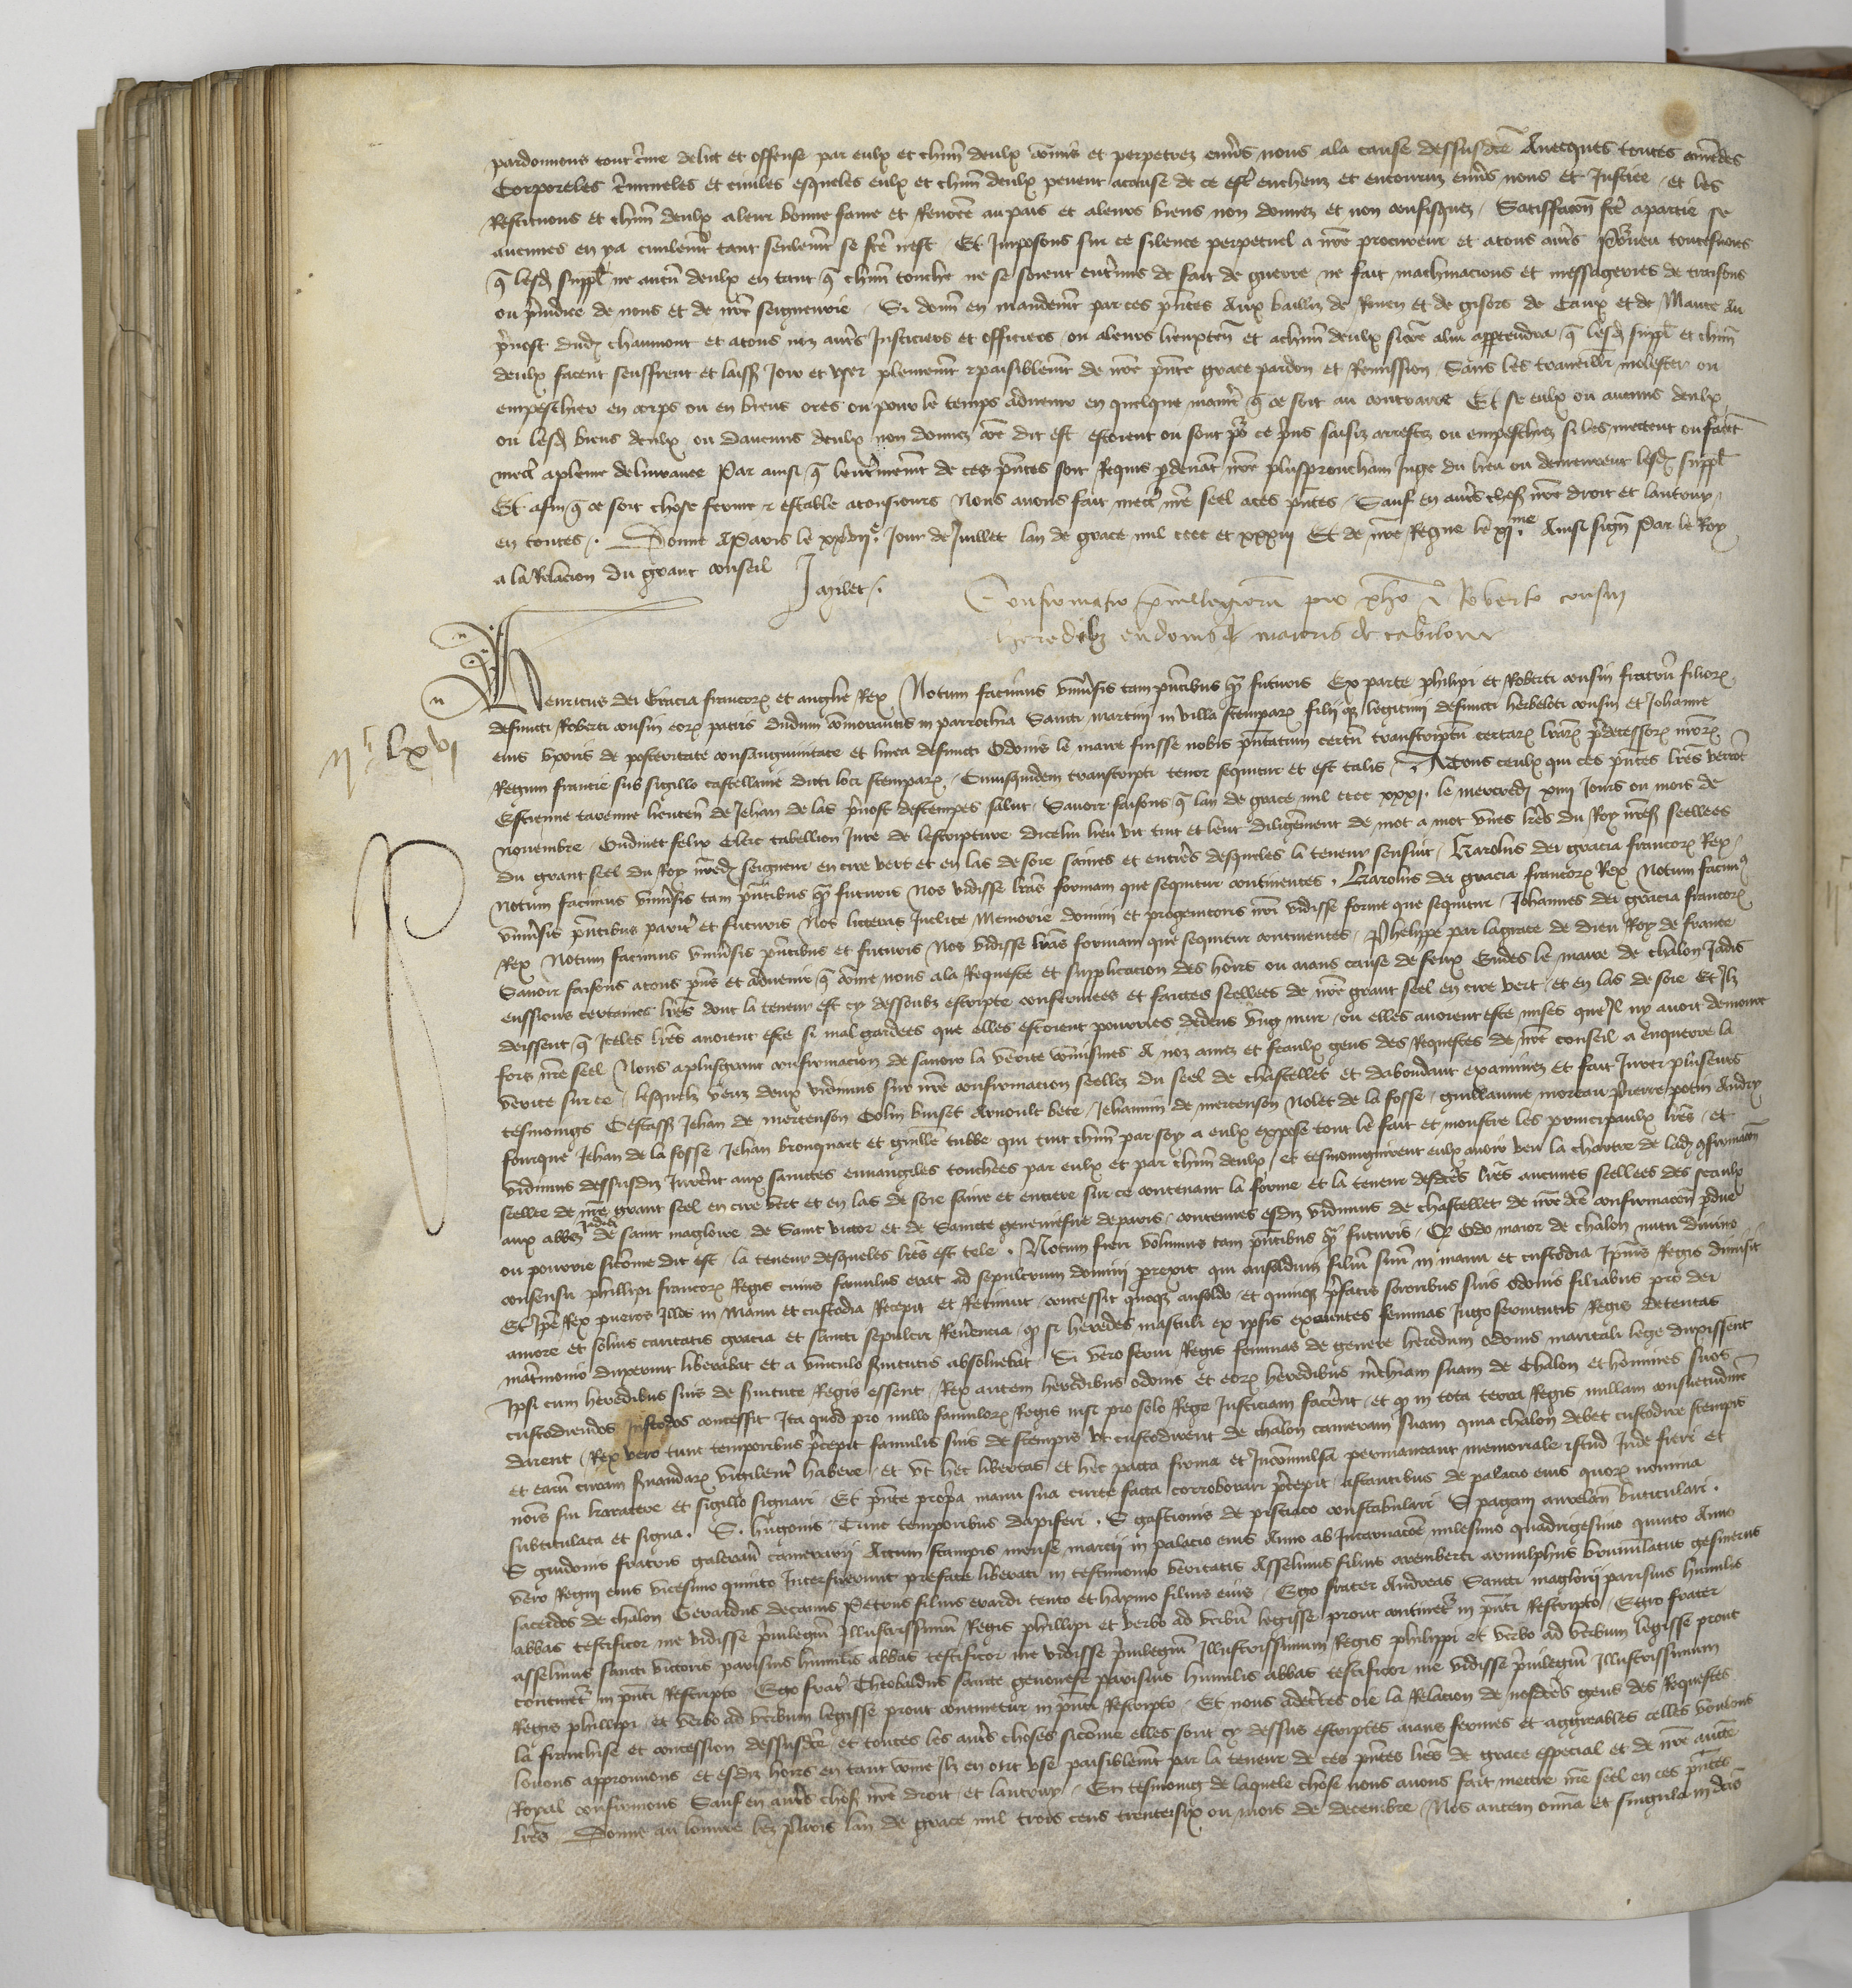 pardonnons tout crime delict et offense par eulx et chūn deulx cōmis et perpetrez enūs nous ala cause dessusdce Avecques toutes amēdes
Corporeles crimineles et civiles esqueles eulx et chūn deulx pevent acause de ce estr encheuz et encouruz enūs nous et Justice et les
Restituons et chūn deulx aleur bonne fame et Renōee au pais et aleurs biens non donnez et non confisquez Satisfaccōn fcē apartie se
aucunes en ya civilemt tant seulemt se fcē nest Et Imposons sur ce silence perpetuel a nrē procureur et atous autrs Pourveu toutesvoies
q̄ lesd suppl ne aucū deulx en tant q̄ chūn touche ne se soient entrmis de fait de guerre ne fait machinacions et messageries de traisons
ou preiudice de nous et de nrē seigneurie Si donn en mandemt par ces pntes Aux bailliz de Rouen et de gisors de Caux et de Mante Au
prevost dud chaumont et atous noz autrs Justiciers et officiers ou aleurs lieuxten et achūn deulx sicōe alui appartendra q̄ lesd suppl et chūn
deulx facent seuffrent et laiss Joir et user plenemt et paisiblemt de nrē pnte grace pardon et Remission Sans les travailler molester ou
empeschier en corps ou en biens ores ou pour le temps advenir en quelque manr̄ q̄ ce soit au contraire Et se eulx ou aucuns deulx
ou lesd biens deulx ou daucuns deulx non donnez cōe dit est estoient ou sont pō ce prins saisiz arrestez ou empeschiez si les mettent ou facent
mectr aplaine delivrance Par ainsi q̄ lentrinemt de ces pntes soit Requis p devāt nrē plus prouchain Juge du lieu ou demeurent lesd suppl
Et afin q̄ ce soit chose ferme et estable atousiours Nous avons fait mectr nrē seel aces pntes Sauf en autrs choses nrē droit et lautruy
en toutes. Donne AParis le xxvii.e Jour de Juillet lan de grace mil cccc et xxxiii Et de nrē Regne le xi.me Ainsi signē Par le Roy
a la Relacion du grant conseil Jazilet.
Confirmatio privilegiorū pro phō et Roberto cousin
heredibz eudonis maioris de cabilone
IIc LXVI
Henricus dei Gracia francorz et anglie Rex Notum facimus univsis tam pntibus q̄ futuris Ex parte philipi et Roberti cousin fratrū filiorz
defuncti Roberti cousin eorz patris dudum cōmorantis in parrochia Sancti martini in villa stemparz filii qz legitimi defuncti herbeleti cousin et Johanne
eius uxoris de posteritate consanguinitate et linea defuncti Odonis le maire fuisse nobis pntatum certū transcriptū certarz lrarz pdecessorz nrorz
Regum francie sub sigillo castellanie dicti loci stemparz Cuiusquidem transcripti tenor sequitur et est talis. ATous ceulx qui ces pntes lrēs verrōt
Estienne tavenne lieutenē de Jehan de las prevost destempes salut Savoir faisons q̄ lan de grace mil cccc xxxi. le mercredj xiiii Jours ou mois de
novembre Oudinet felix Clerc tabellion Jure de lescripture dicelui lieu vit tint et leut diligēment de mot a mot unes lrēs du Roy nrēs seellees
du grant seel du Roy nrēd seigneur en cire vert et en las de soie saines et entirs desqueles la teneur sensuit Karolus dei gracia francorz Rex
Notum facimus univsis tam pntibus q̄ futuris Nos vidisse lrās formam que sequitur continentes. Karolus dei gracia francorz Rex Notum facimus
univsis pntibus parit et futuris Nos litteras Inclite Memorie domini et progenitoris nri vidisse forme que sequitur Johannes dei gracia francorz
Rex Notum facimus univsis pntibus et futuris Nos vidisse lrās formam que sequitur continentes Phelippe par lagrace de dieu Roy de france
Savoir faisons atous pns et advenir q̄ cōme nous ala Requeste et supplicacion des hoirs ou aians cause de feux Eudes le maire de chalon Jadis
eussions certaines lrēs dont la teneur est cy dessoubz escripte confermees et faictes seellees de nrē grant seel en cire vert et en las de soie Et Ilz
deissent q̄ Iceles lrēs avoient este si mal gardees que elles estoient pourries dedens ung mur ou elles avoient este mises que Il ny avoit demoure
fors nrē seel Nous aplusgrant confirmacion de savoir la verite commismes A noz amez et feaulx gens des Requestes de nrē conseil a Enquerre la
verite sur ce lesquelz veuz deux vidimus sur nrē confirmacion seellez du seel de chastellet et dabondant examinez et fait Jurer pluseurs
tesmoings Cestass Jehan de mertenson Colin buiset Arnoult bete Jehannin de mertenson Nolet de la fosse guillaume moreau pierre potin Andry
fourque Jehan de la fosse Jehan bronquart et guillē tubbe qui tuit chūn par soy a eulx expose tout le fait et monstre les principaulx lrēs et
vidimus dessusdiz Jurerēt aux sainctes euuangiles touchees par eulx et par chūn deulx et tesmoignierent eulx avoir veu la chartre de lad confirmacōn
seellee de nrē grant seel en cire vert et en las de soie saine et entiere sur ce contenant la forme et la teneur desdcēs lrēs aucunes seellees des seaulx
aux abbez Jadiz de saint magloire de Saint victor et de Saincte geneviefve deparis contenues esdiz vidimus de chastellet de nrē dcē confirmacōn pdue
ou pourrie sicōme dit est la teneur desqueles lrēs est tele. Notum fieri volumus tam pntibus q̄ futuris Q̄ Odo maior de chalon nutu divino
consensu phillipi francorz Regis cuius famulus erat ad sepulcrum domini prexit qui ansoldum filiū suū in manu et custodia Ipsius Regis dimisit
Et Ipse Rex pueros Illos in Manu et custodia Recepit et Retinuit concessit quoqz ansoldo et quinqz prefatis sororibus suis odonis filiabus pro dei
amore et solius caritatis gracia et sancti sepulcri Reverencia q̄ si heredes masculi ex ipsis exeuntes feminas Iugo servitutis Regis detentas
mātrimonio duxerint liberabat et a vinculo svitutis absolvebat Si vero servi Regis feminas de genere heredum odonis maritali lege duxissent
Ipsi cum heredibus suis de svitute Regis essent Rex autem heredibus odonis et eorz heredibus mrchiam suam de Chalon et homines suos
custodiendos Incodos concessit Ita quod pro nullo famulorz Regis nisi pro solo Rege Justiciam facerēt et q̄ in tota terra Regis nullam consuetudinē
darent Rex vero tunc temporibus precepit famulis suis de stempis ut custodirent de chalon cameram suam quia chalon debet custodire stempis
et earū curam svandarz vigilent habere et ut hec libertas et hec pacta firma et Inconvulsa permaneant memoriale istud Inde fieri et
noīs sui karactere et sigillo signari Et pnte propria manu sua cruce facta corroborari precepit astantibus de palacio eius quorz nomina
subtitulata et signa. S. hugonis Tunc temporibus dapiferi. S gastionis de pisciaco constabularii S pagani aurelañ buticulari.
S guidonis fratris galerañ camerarii Actum stampis mense marcij in palacio eius Anno ab Incarnacōe milesimo quadrigesimo quinto Anno
vero Regni eius vicesimo quinto Interfuerunt prefate liberati in testimonio veritatis Asselinus filius aremberti arnulphus brunulatus gesinerus
sacerdos de chalon Gerardus decanus Petrus filius erardi tento et haymo filius eius Ego frater Andreas Sancti maglorij parisius humilis
abbas testificor me vidisse privilegiū Illustrissimūm Regis phillipi et verbo ad verbū legisse prout continetr in pnti Rescripto Ego frater
asselinus sancti victoris parisius humilis abbas testificor me vidisse privilegiū Illustrissimum Regis philippi et verbo ad verbum legisse prout
continetr in pnti Rescripto Ego fratr Theobaldus sancte genovefe parisius humilis abbas testificor me vidisse privilegiū Illustrissimum
Regis phillipi et verbo ad verbum legisse prout continetur in pnti Rescripto Et nous adecrtes oie la Relacion de nosdcēs gens des Requestes
la franchise et concession dessusdcē et toutes les autrs choses sicōme elles sont cy dessus escriptes aians fermes et aggreables celles voulons
louons approuvons et esdiz hoirs en tant cōme Ilz en ont use paisiblemt par la teneur de ces pntes lrēs de grace especial et de nrē aucte
Royal confirmons Sauf en autrs choses nrē droit et lautruy En tesmoing de laquele chose nous avons fait mettre nrē seel en ces pntes
lrēs Donne au louvre lez paris lan de grace mil trois cens trentesix ou mois de decembre Nos autem omīa et singula in dcīs